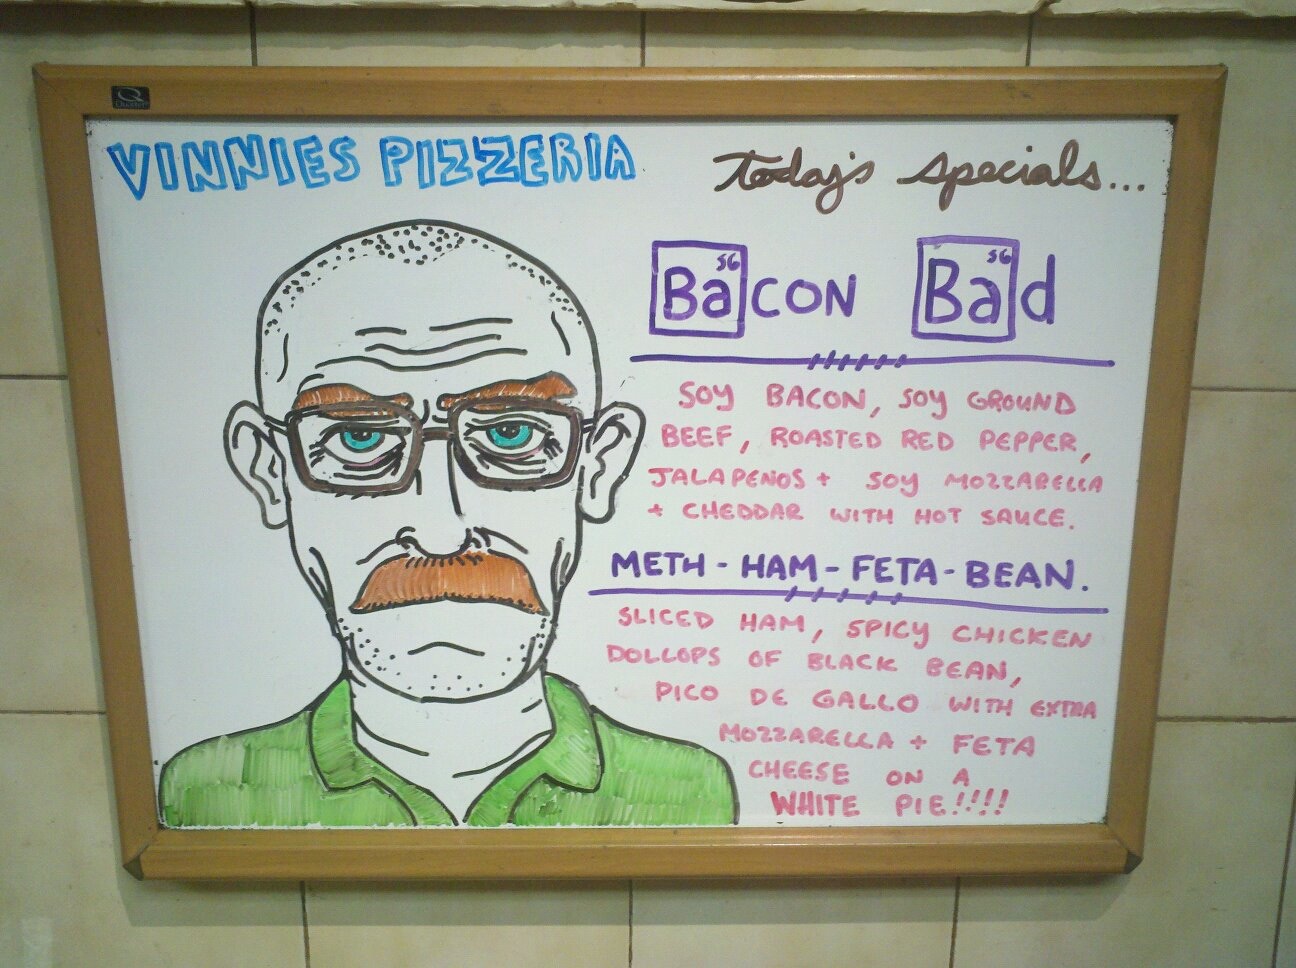 VINNIES PIZZERIA
Today's specials...
56
BaCON
56
Bad
SOY BACON, SOY GROUND
BEEF, ROASTED RED PEPPER,
JALAPENOS + SOY MOZZARELLA
+ CHEDDAR WITH HOT SAUCE.
METH-HAM-FETA-BEAN.
SLICED HAM, SPICY CHICKEN
DOLLOPS OF BLACK BEAN,
PICO DE GALLO WITH EXTRA
MOZZARELLA + FETA
CHEESE ON A
WHITE PIE!!!!